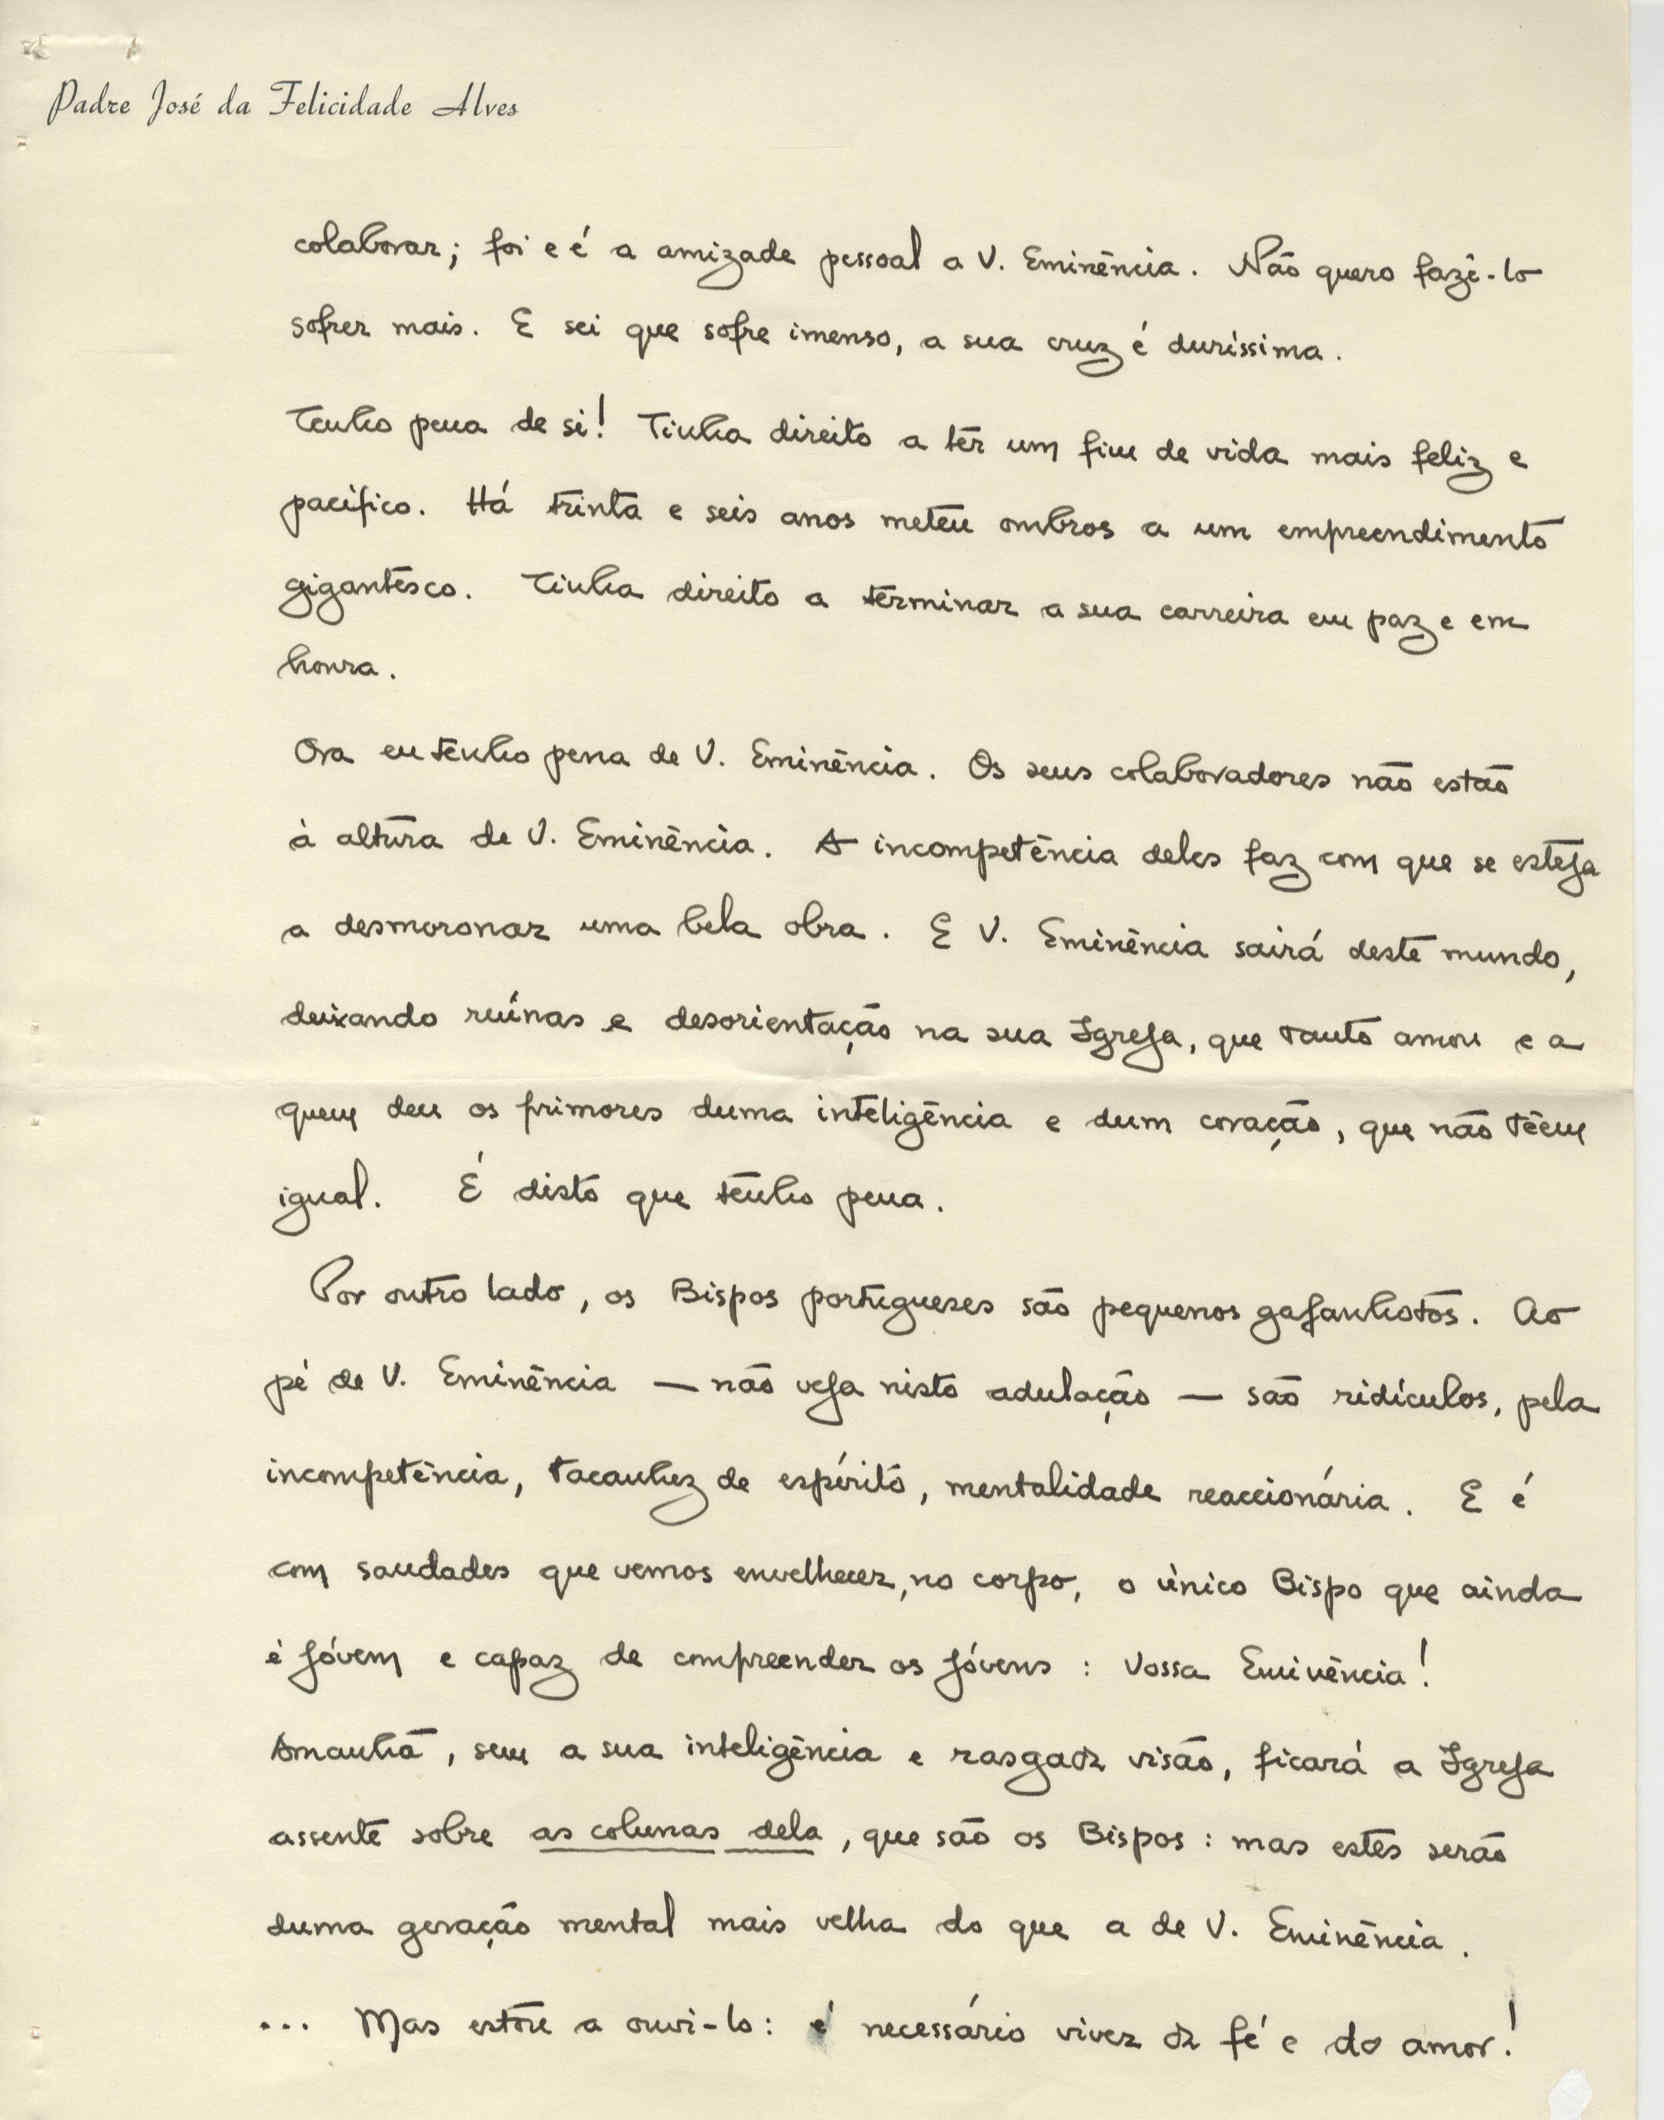 Padre José da Felicidade Alves
colaborar; foi e é a amizade pessoal a V. Eminência. Não quero fazê-lo
sofrer mais. E sei que sofre imenso, a sua cruz é duríssima.
Tenho pena de si! Tinha direito a ter um fim de vida mais feliz e
pacífico. Há trinta e seis anos meteu ombros a um empreendimento
gigantesco. Tinha direito a terminar a sua carreira em paz e em
honra.
Ora eu tenho pena de V. Eminência. Os seus colaboradores não estão
à altura de V. Eminência. A incompetência deles faz com que se esteja
a desmoronar uma bela obra. E V. Eminência sairá deste mundo,
deixando ruínas e desorientação na sua Igreja, que tanto amou e a
quem deu os primores duma inteligência e dum coração, que não têem
igual. É disto que tenho pena.
Por outro lado, os Bispos portugueses são pequenos gafanhotos. Ao
pé de V. Eminência — não veja nisto adulação — são ridículos, pela
incompetência, tacanhez de espírito, mentalidade reaccionária. E é
com saudades que vemos envelhecer, no corpo, o único Bispo que ainda
é jóvem e capaz de compreender os jóvens : Vossa Eminência!
Amanhã, sem a sua inteligência e rasgada visão, ficará a Igreja
assente sobre as colunas dela, que são os Bispos : mas estes serão
duma geração mental mais velha do que a de V. Eminência.
... Mas estou a ouvi-lo: é necessário viver da fé e do amor!